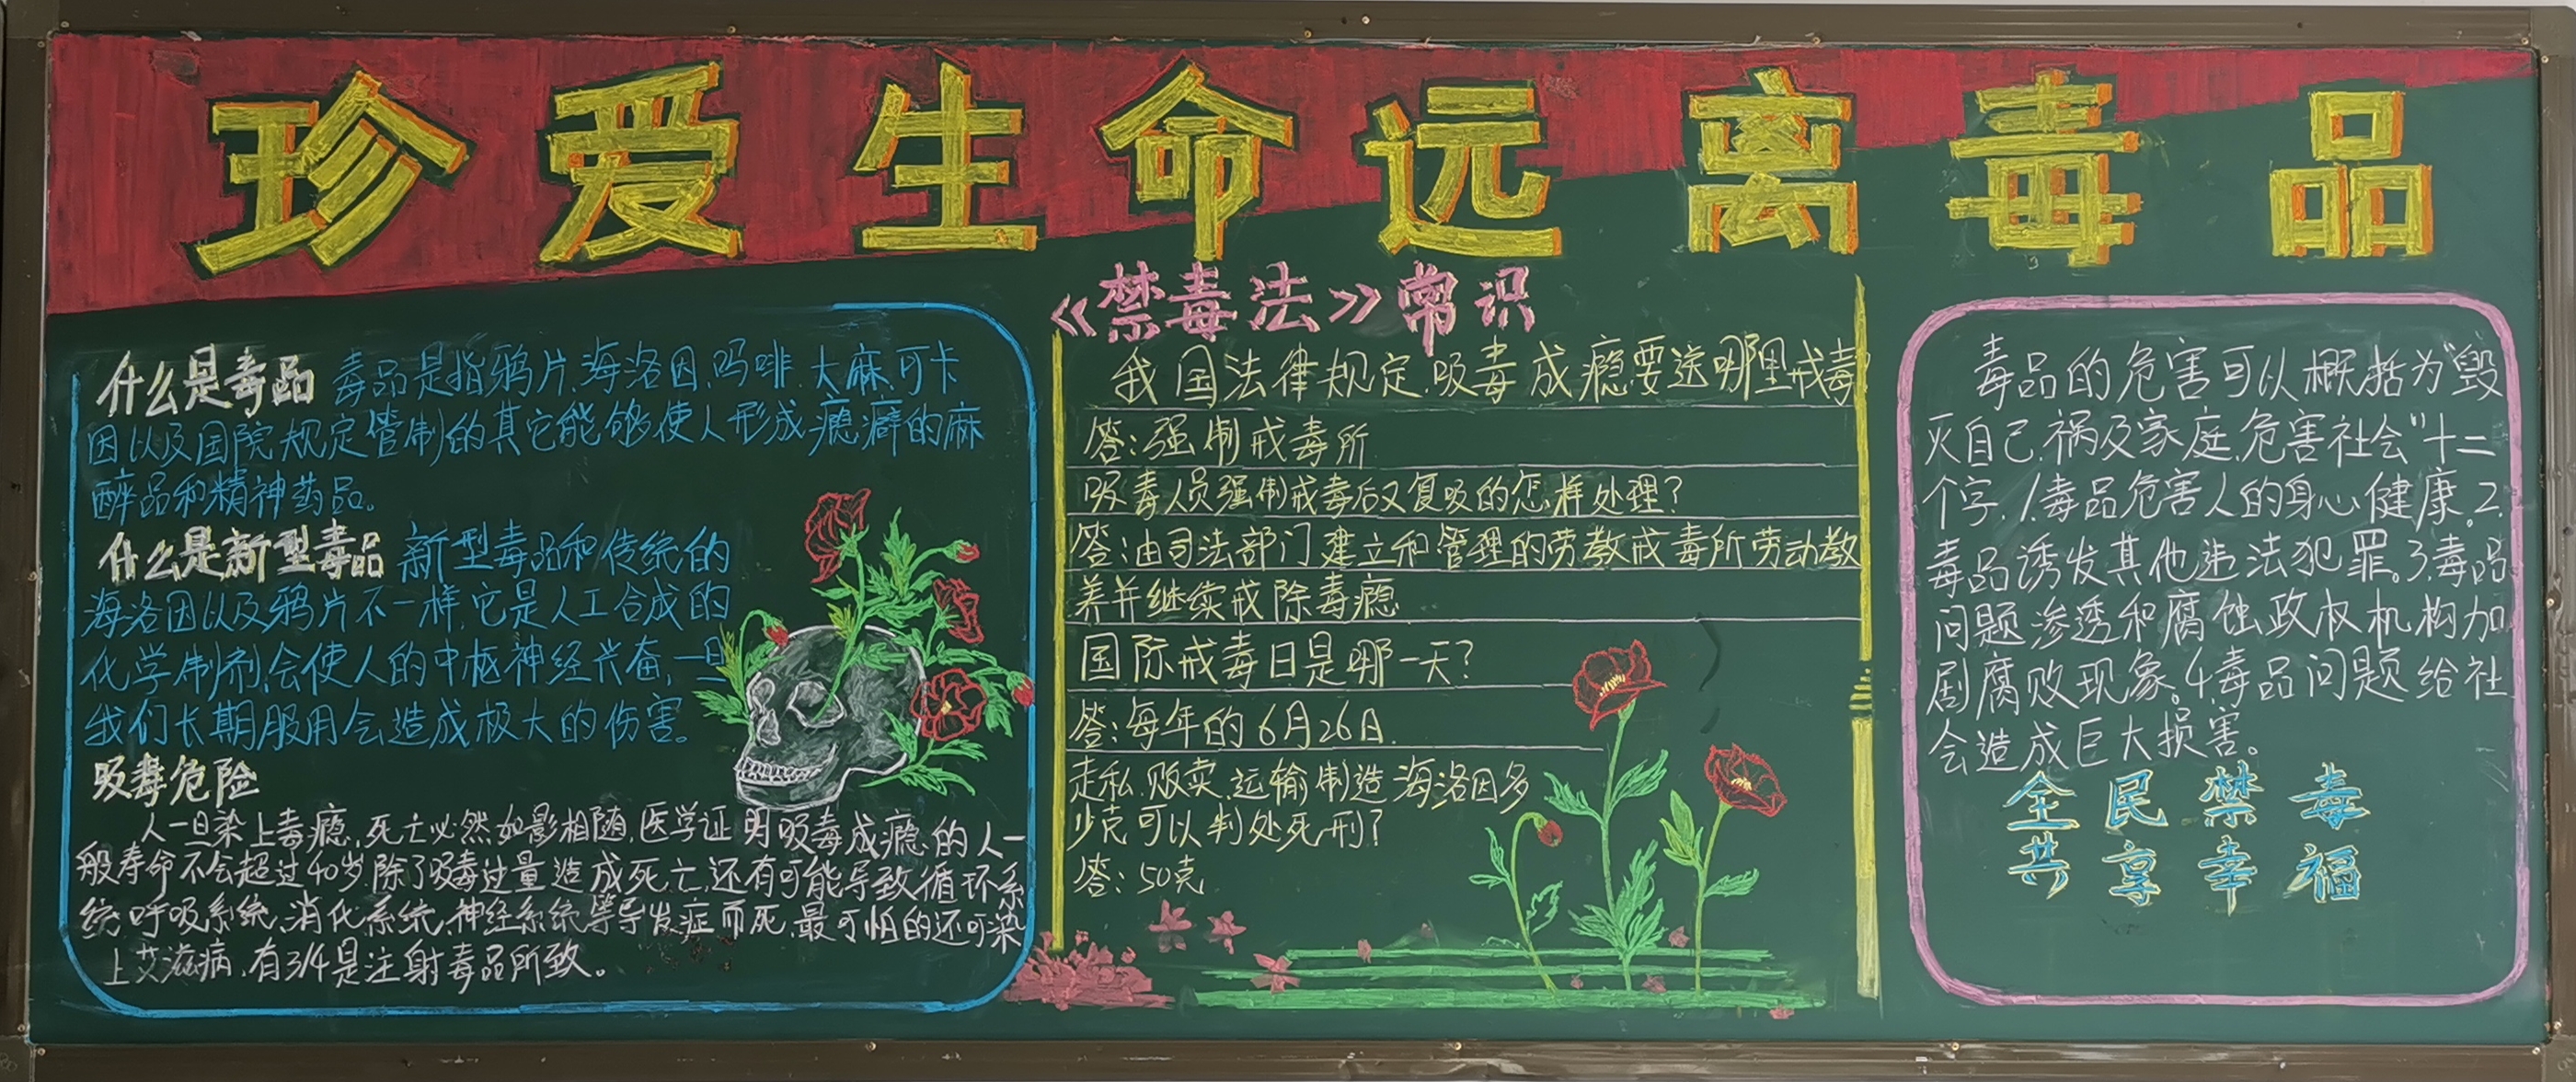 珍爱生命远离毒品
什么是毒品 毒品是指鸦片.海洛因.吗啡.大麻.可卡
因以及国院规定管制的其它能够使人形成瘾癖的麻
醉品和精神药品。
什么是新型毒品 新型毒品和传统的
海洛因以及鸦片不一样,它是人工合成的
化学制剂,会使人的中枢神经兴奋,一旦
我们长期服用会造成极大的伤害。
吸毒危险
人一旦染上毒瘾,死亡必然如影相随,医学证明吸毒成瘾的人一
般寿命不会超过40岁,除了吸毒过量造成死亡,还有可能导致循环系
统,呼吸系统,消化系统,神经系统等导发症而死,最可怕的还可染
上艾滋病,有3/4是注射毒品所致。
《禁毒法》常识
我国法律规定,吸毒成瘾要送哪里戒毒
答:强制戒毒所
吸毒人员强制戒毒后又复吸的怎样处理?
答:由司法部门建立和管理的劳教戒毒所劳动教
养并继续戒除毒瘾
国际戒毒日是哪一天?
答:每年的6月26日.
走私.贩卖.运输制造海洛因多
少克可以判处死刑?
答:50克
毒品的危害可以概括为“毁
灭自己.祸及家庭.危害社会”十二
个字.1.毒品危害人的身心健康。2.
毒品诱发其他违法犯罪。3.毒品
问题渗透和腐蚀政权机构加
剧腐败现象。4毒品问题给社
会造成巨大损害。
全民禁毒
共享幸福